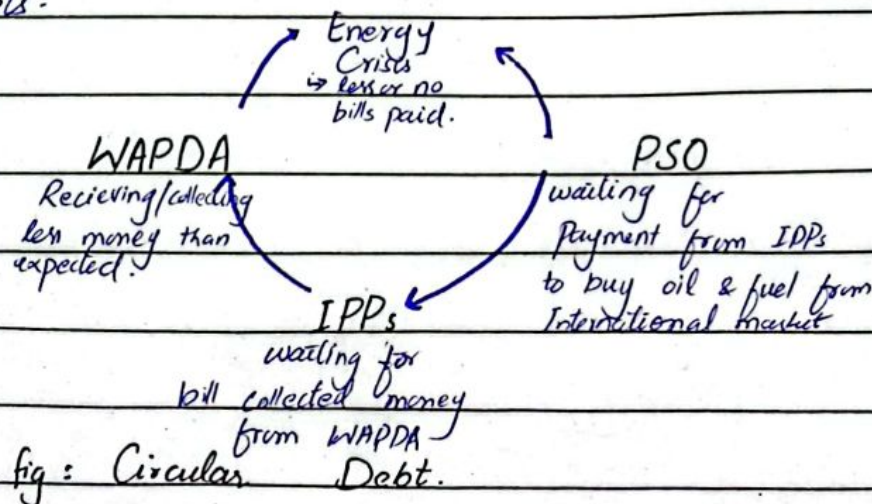 Energy
Crisis
↳ less or no
bills paid.
WAPDA
Recieving/collecting
less money than
expected.
PSO
waiting for
Payment from IDPs
to buy oil & fuel from
International market
IPPs
waiting for
bill collected money
from WAPDA
fig: Circular Debt.